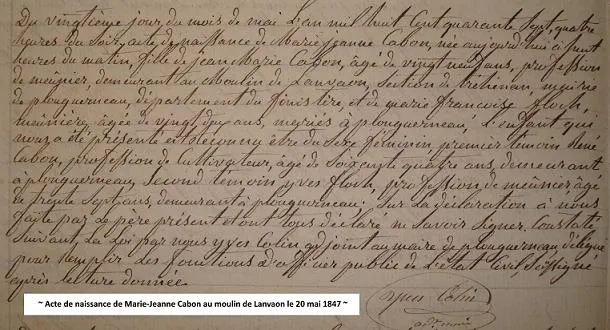 Du vingtième jour du mois de mai L'an mil huit Cent quarante Sept, quatre
heures du Soir, acte de naissance de Marie Jeanne Cabon, née aujourd'hui à
heures du matin, fille de jean Marie Cabon, âgé de vingt neuf ans, profession
de meûnier, demeurant au Moulin de Lanvaon, Section de tréhénan, mairie
de plouguerneau, département du finistère, et de marie francoise floch,
meûnière, agée de vingt deux ans, mariés à plouguerneau, L'enfant qui
nous a été présenté a été reconnu être du Sexe féminin, premier temoin René
Cabon, profession de Cultivateur, âgé de Soixante quatre ans, demeurant
à plouguerneau, Second témoin yves floch, profession de meûnier, âgé
de trente Sept ans, demeurant à plouguerneau; Sur La déclaration à nous
faite par Le père présent et ont tous déclaré ne Savoir Signer. Constaté
Suivant La Loi par nous yves Colin adjoint au maire de plouguerneau délégué
pour remplir Les fonctions d'officier public de L'état Civil, Soussigné
après lecture donnée.
yves Colin
~ Acte de naissance de Marie-Jeanne Cabon au moulin de Lanvaon le 20 mai 1847 ~